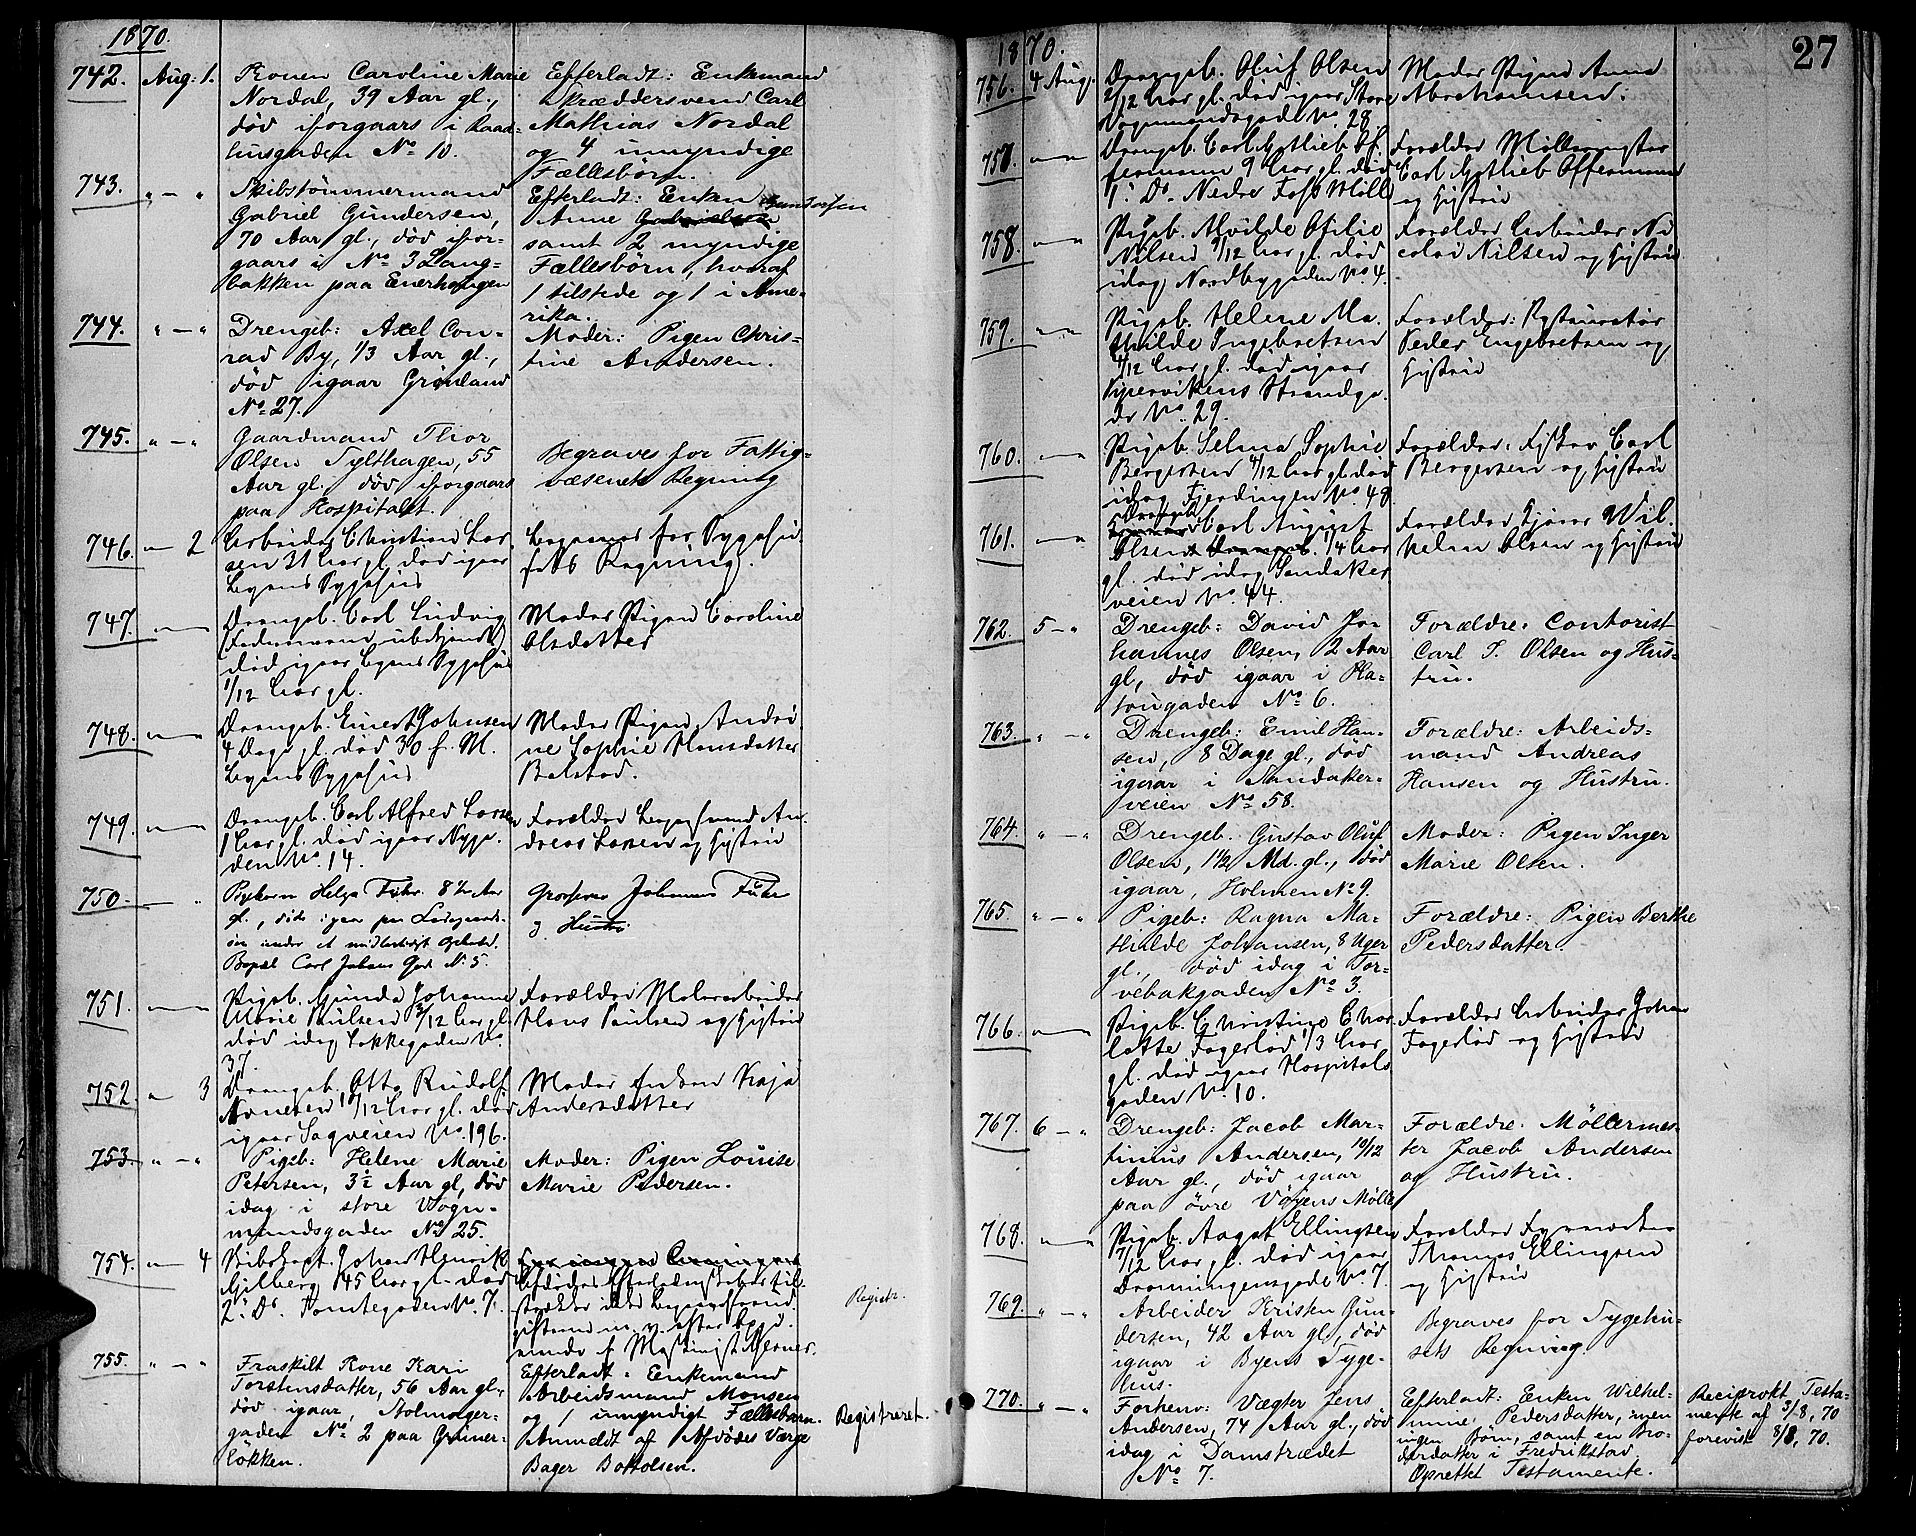 1870.
742. Aug: 1. Konen Caroline Marie
Nordal, 39 Aar gl.,
död iforgaars i Raad-
husgaden No 10.
Efterladt: Enkemand
Skræddersvend Carl
Mathias Nordal
og 4 umyndige
Fællesbörn.
743. " - " Skibstömmermand
Gabriel Gundersen,
70 Aar gl., död ifor-
gaars i No 3 Lang-
bakken paa Enerhaugen
Efterladt: Enken
Anne Gundersen
samt 2 myndige
Fællesbörn, hvoraf
1 tilstede og 1 i Ame-
rika.
744. " - " Drengeb: Axel Con-
rad By, 1/3 Aar gl.,
död igaar Grönland
No 27.
Moder: Pigen Chris-
tine Andersen.
745. " - " Gaardmand Thor
Olsen Sylthagen, 55
Aar gl. död iforgaars
paa Hospitalet.
Begraves for Fattig-
væsenets Regning
746. " 2 Arbeider Christian Lar-
sen 21 Aar gl. död igaar
Byens Sygehus
Begraves for Sygehu-
sets Regning.
747. Drengeb. Carl Ludvig
(Fadernavn ubekjendt)
död igaar Byens Sygehus
1/12 Aar gl.
Moder Pigen Caroline
Olsdatter
748. Drengeb. Einert Johnsen
4 Dage gl. död 30 f. M.
Byens Sygehus
Moder Pigen Andri-
ne Sophie Hansdatter
Bolstad.
749. Drengeb. Carl Alfred Larsen
1 Aar gl. död igaar Nyga-
den No 14.
Forældre An-
dreas Larsen og Hustru
750. Pigebarn Helga Fuhr 8 1/2 Aar
gl., döde igaar paa Ladegaards-
öen under et midlertidigt Ophold.
Bopæl Carl Johans Gad. No 5.
Grosserer Johannes Fuhr
og Hustru
751. Pigeb. Gunda Johanne
Marie Paulsen 3/12 Aar gl.
död idag Lakkegaden No
37.
Forældre Malerarbeider
Hans Paulsen og Hustru
752. " 3 Drengeb. Otto Rudolf
Arnesen 10/12 Aar gl. död
igaar Sagveien No 196.
Moder Enken Kaja
Andersdatter
753. " - " Pigeb: Helene Marie
Petersen, 3 1/2 Aar gl, död
idag i store Vogn-
mandsgaden No 25.
Moder: Pigen Louise
Marie Pedersen.
754. " 4 Skibskapt. Johan Henrik
Gilberg 45 Aar gl. död
2 Ds. Tomtegaden No 7.
Registr.
755. " - " Fraskilt Kone Kari
Torstensdatter, 56 Aar gl.,
död igaar, Holmager-
gaden No 2 paa Grüner-
lökken.
Efterladt: Enkemand
Arbeidsmand Monsen
og 1 umyndigt Fællesbarn.
Anmeldt af Afdödes Værge
Bager Bottolsen.
Registreret.
27
1870.
756. 4 Aug. Drengeb. Oluf Olsen
2/12 Aar gl. död igaar Store
Vognmandsgade No 28
Moder Pigen Anna
Abrahamsen.
757. Drengeb. Carl Gottlieb Of-
fermann 9 Aar gl. död
1 Ds. Nedre Foss Mölle
Forældre Möllemester
Carl Gottlieb Offermann
og Hustru
758. Pigeb. Alvilde Otilie
Nilsen 9/12 Aar gl. död
idag Nordbygaden No 4.
Forældre Arbeider Ni-
colai Nilsen og Hustru
759. Pigeb. Helene Ma-
thilde Ingebretsen
4/12 Aar gl. död igaar
Pipervikens Strandga-
de No 29.
Forældre: Restauratör
Peder Engebretsen og
Hustru
760. Pigeb. Selma Sophie
Bergersen 4/12 Aar gl. död
idag Fjerdingen No 48
Forældre: Fisker Carl
Bergersen og Hustru
761. Drengeb. Carl August
Olsen 1/4 Aar
gl. död idag Sandaker
veien No 44.
Forældre Wil-
helm Olsen og Hustru
762. 5 - " Drengeb: David Jo-
hannes Olsen, 2 Aar
gl, död igaar i Pla-
tougaden No 6.
Forældre: Contorist
Carl S. Olsen og Hus-
tru.
763. " - " Drengeb: Emil Han-
sen, 8 Dage gl., död
igaar i Sandaker-
veien No 58.
Forældre: Arbeids-
mand Andreas
Hansen og Hustru.
764. " - " Drengeb: Gustav Oluf
Olsen, 1 1/2 Md. gl., död
igaar, Holmen No 9.
Moder: Pigen Inger
Marie Olsen.
765. " - " Pigeb: Ragna Ma-
thilde Johansen, 8 Uger
gl., död idag i Tor-
vebakgaden No 3.
Forældre: Pigen Berthe
Pedersdatter.
766. Pigeb. Christine Char-
lotte Fagerlöd 1/3 Aar
gl. död igaar Hospitals
gaden No 10.
Forældre Arbeider Johan
Fagerlöd og Hustru
767. 6 - " Drengeb: Jacob Mar-
tinius Andersen, 10/12
Aar gl., död igaar
paa övre Vöiens Mölle
Forældre: Möllermes-
ter Jacob Andersen
og Hustru.
768. Pigeb. Aagot Ellingsen
7/12 Aar gl. död igaar
Dronningensgade No 7.
Forældre
Thomas Ellingsen
og Hustru
769. " - " Arbeider Kristen Gun-
dersen, 42 Aar gl., död
igaar i Byens Syge-
hus.
Begraves for Sygehu-
sets Regning.
770. " - " Forhenv: Vægter Jens
Andersen, 74 Aar gl., död
idag i Damstrædet
No 7.
Efterladt: Enken Wilhel-
mine Pedersdatter, men
ingen Börn, samt en Bro-
derdatter i Fredrikstad
Oprettet Testamente.
Reciprokt Testa-
mente af 3/8, 70
forevist 8/8, 70.